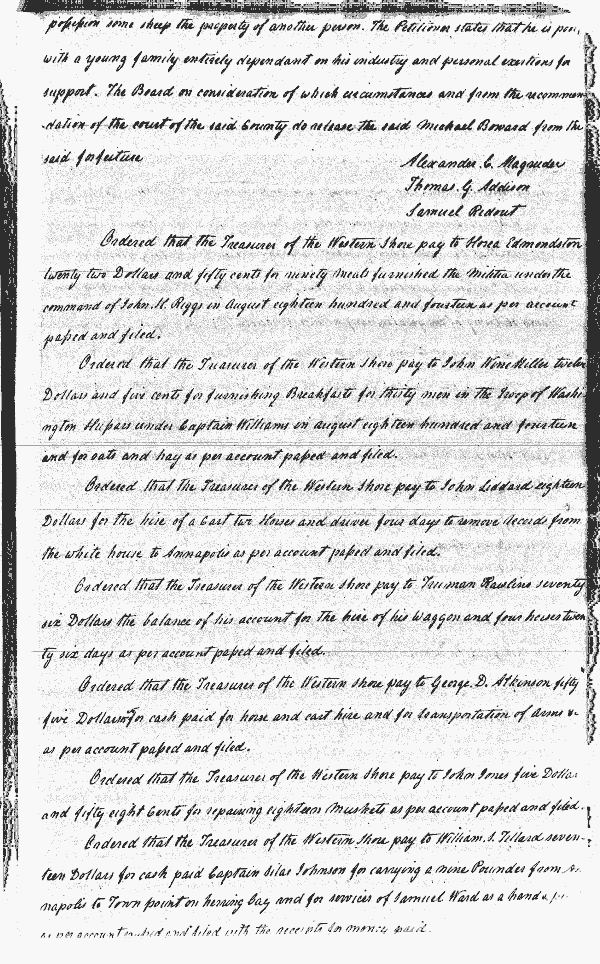 possession some sheep the property of another person. The Petitioner states that he is poor
with a young family entirely dependant on his industry and personal exertions for
support. The Board on consideration of which circumstances and from the recommen
dation of the court of the said County do release the said Michael Boward from the
said forfeiture
Alexander C. Magruder
Thomas. G. Addison
Samuel Ridout
Ordered that the Treasurer of the Western Shore pay to Horea Edmondston
twenty two Dollars and fifty cents for ninety meals furnished the Militia under the
command of John. H. Riggs in August eighteen hundred and fourteen as per account
passed and filed.
Ordered that the Treasurer of the Western Shore pay to John Wine Miller twelve
Dollars and five cents for furnishing Breakfasts for thirty men in the Troop of Washi
ngton Hussars under Captain Williams in august eighteen hundred and fourteen
and for oats and hay as per account passed and filed.
Ordered that the Treasurer of the Western Shore pay to John Liddard eighteen
Dollars for the hire of a Cart two Horses and driver four days to remove records from
the white house to Annapolis as per account passed and filed.
Ordered that the Treasurer of the Western Shore pay to Truman Rawlins seventy
six Dollars the balance of his account for the hire of his waggon and four horses twen
ty six days as per account passed and filed.
Ordered that the Treasurer of the Western Shore pay to George. D. Atkinson fifty
five Dollars for cash paid for horse and cart hire and for transportation of Arms &c
as per account passed and filed.
Ordered that the Treasurer of the Western Shore pay to John Jones five Dollar
and fifty eight Cents for repairing eighteen Muskets as per account passed and filed.
Ordered that the Treasurer of the Western Shore pay to William. S. Tillard seven-
teen Dollars for cash paid Captain Silas Johnson for carrying a nine Pounder from An
napolis to Town point on herring bay and for services of Samuel Ward as a hand
as per account passed and filed with the receipts for money paid.